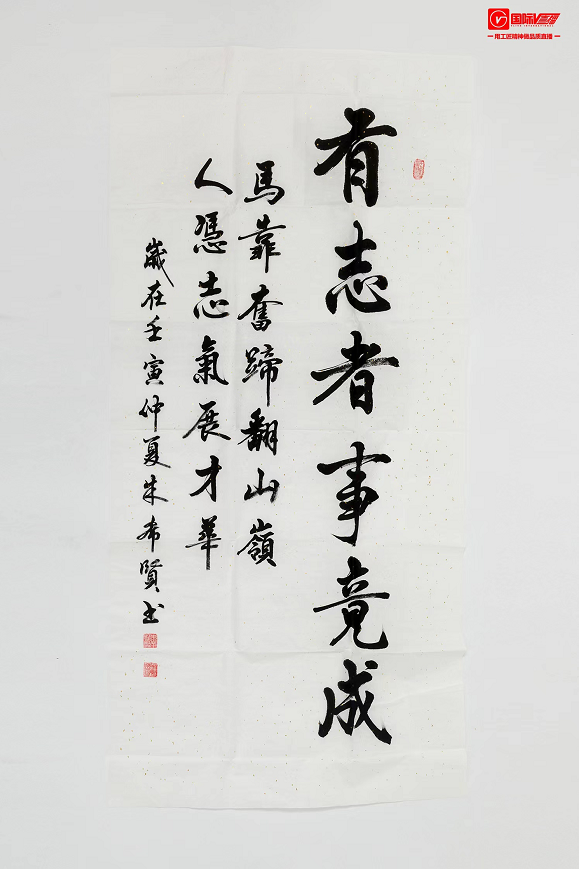 有志者事竟成
馬靠奮蹄翻山嶺
人憑志氣展才華
歲在壬寅仲夏朱希賢书
国际
用工匠精神做品质直播